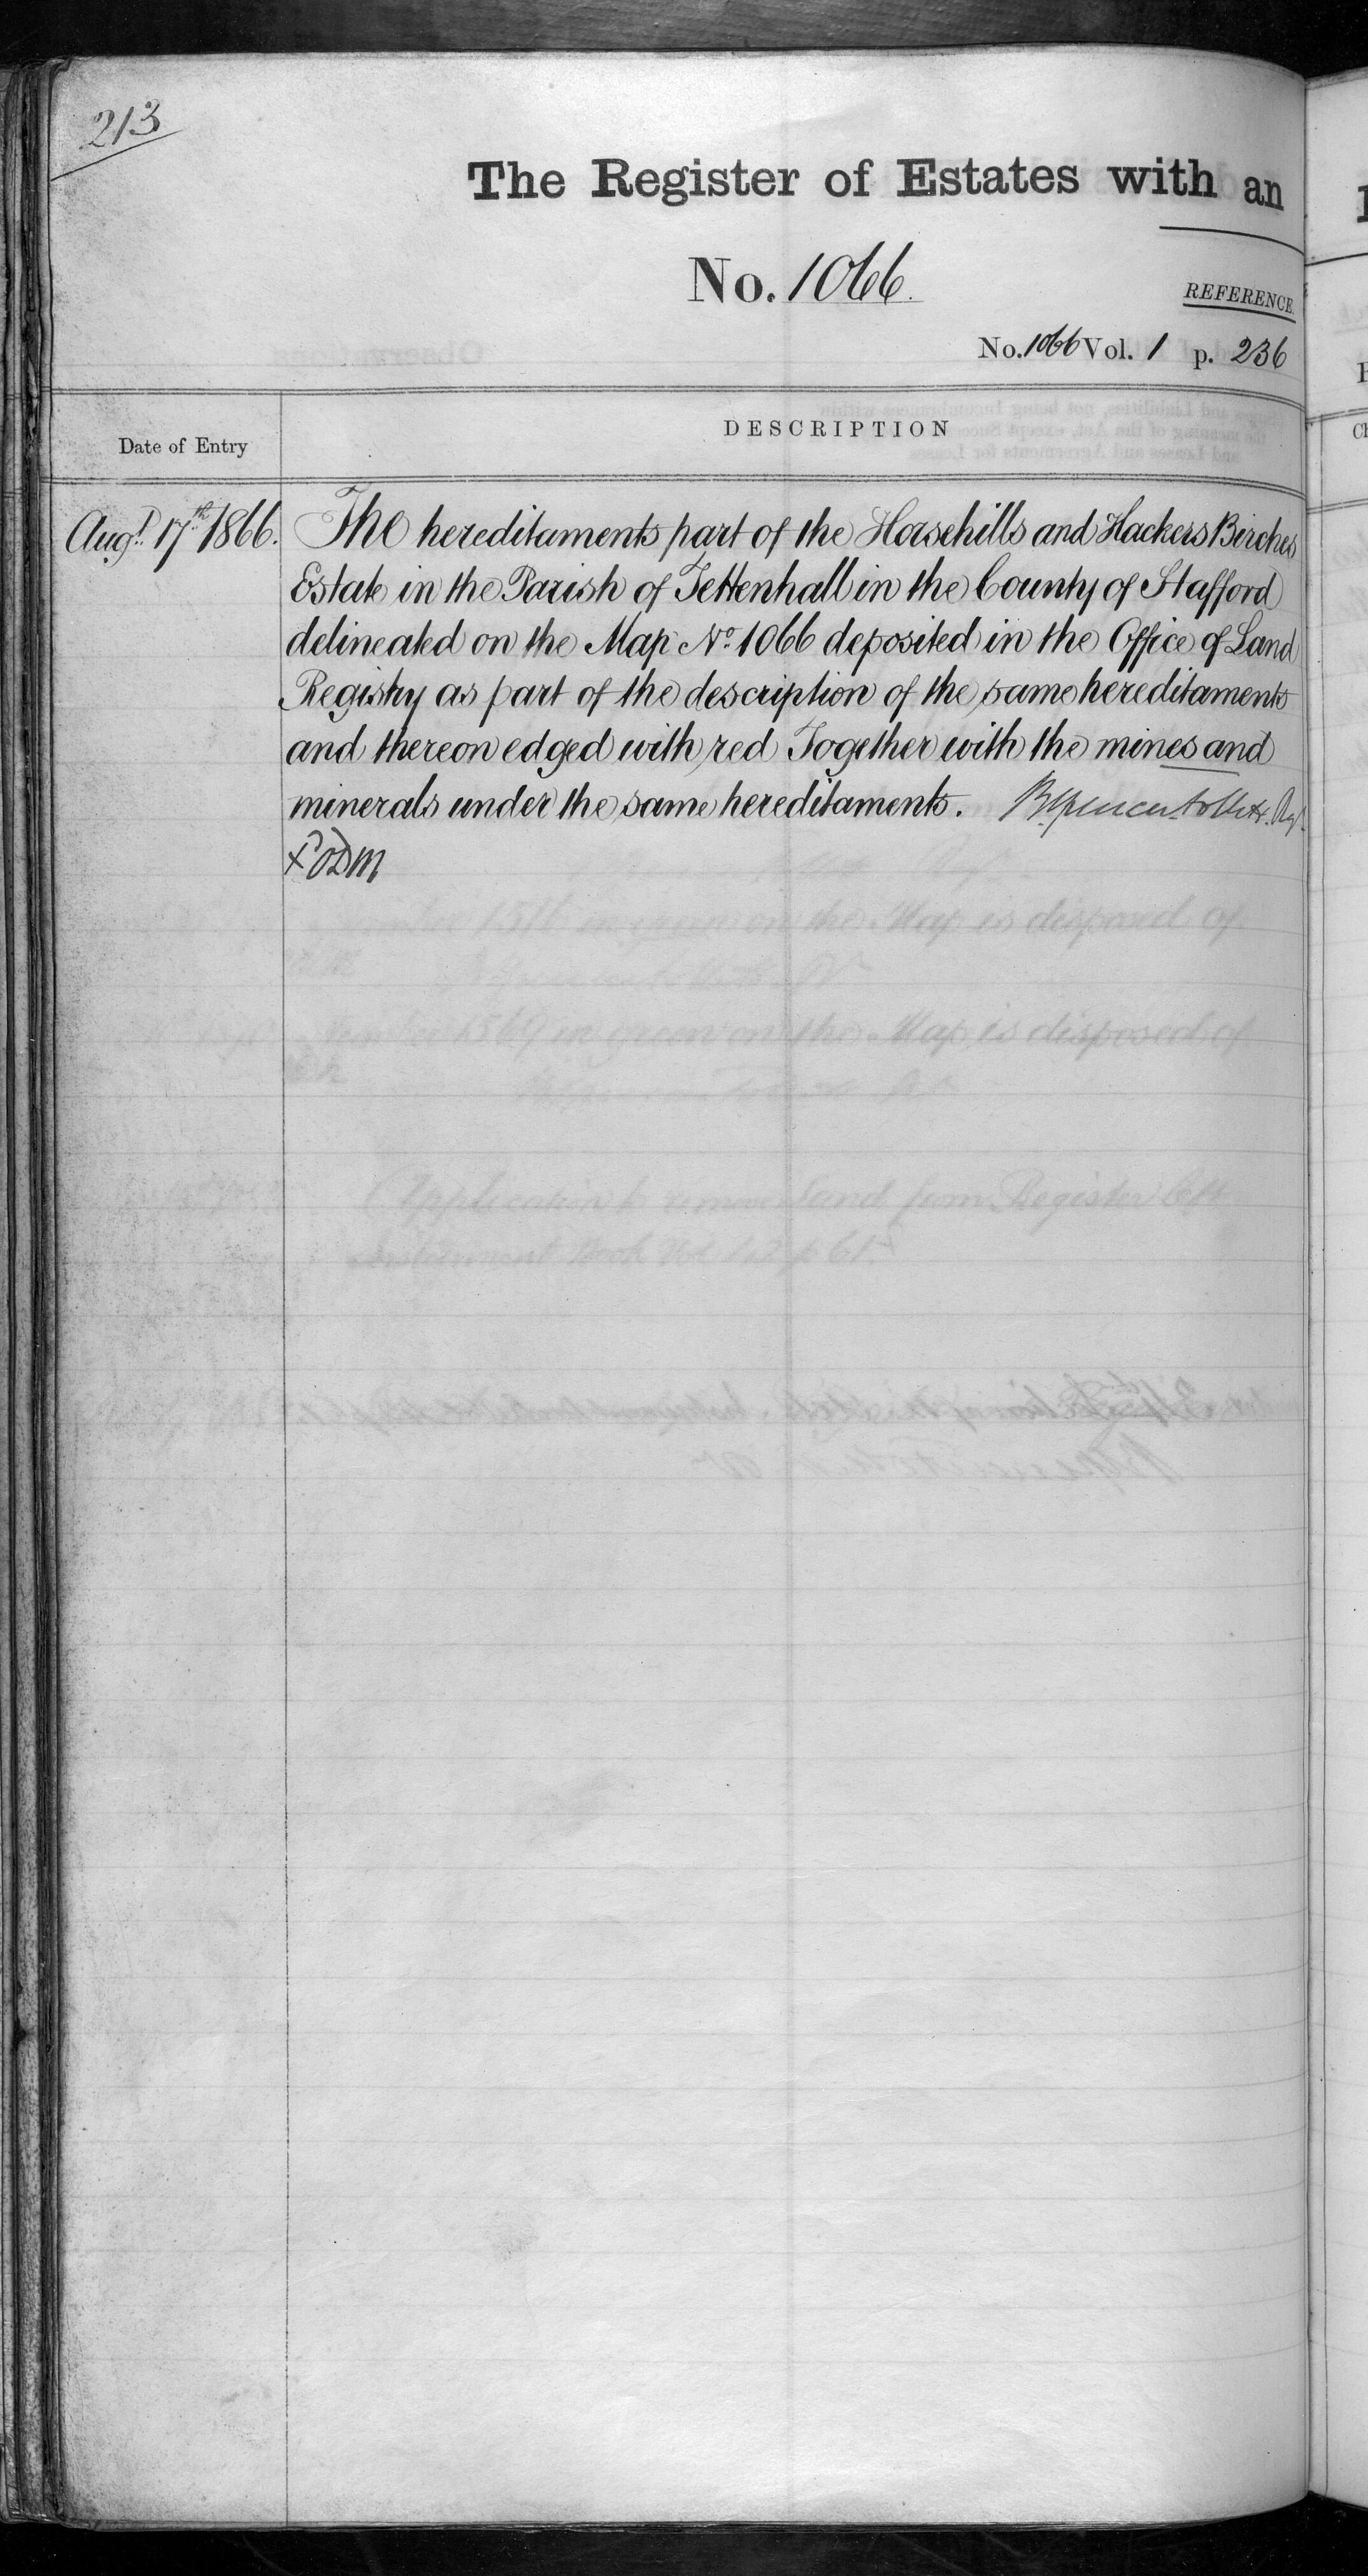 213
The Register of Estates with an
No. 1066.
REFERENCE.
No. 1066 Vol. 1 p. 236
Date of Entry
DESCRIPTION
Augt. 17th 1866.
The hereditaments part of the Horsehills and Hackers Birches
Estate in the Parish of Tettenhall in the County of Stafford
delineated on the Map No. 1066 deposited in the Office of Land
Registry as part of the description of the same hereditaments
and thereon edged with red Together with the mines and
minerals under the same hereditaments.
on the Map is disposed of
1569 in green on the Map is disposed of
Application to remove Land from Register